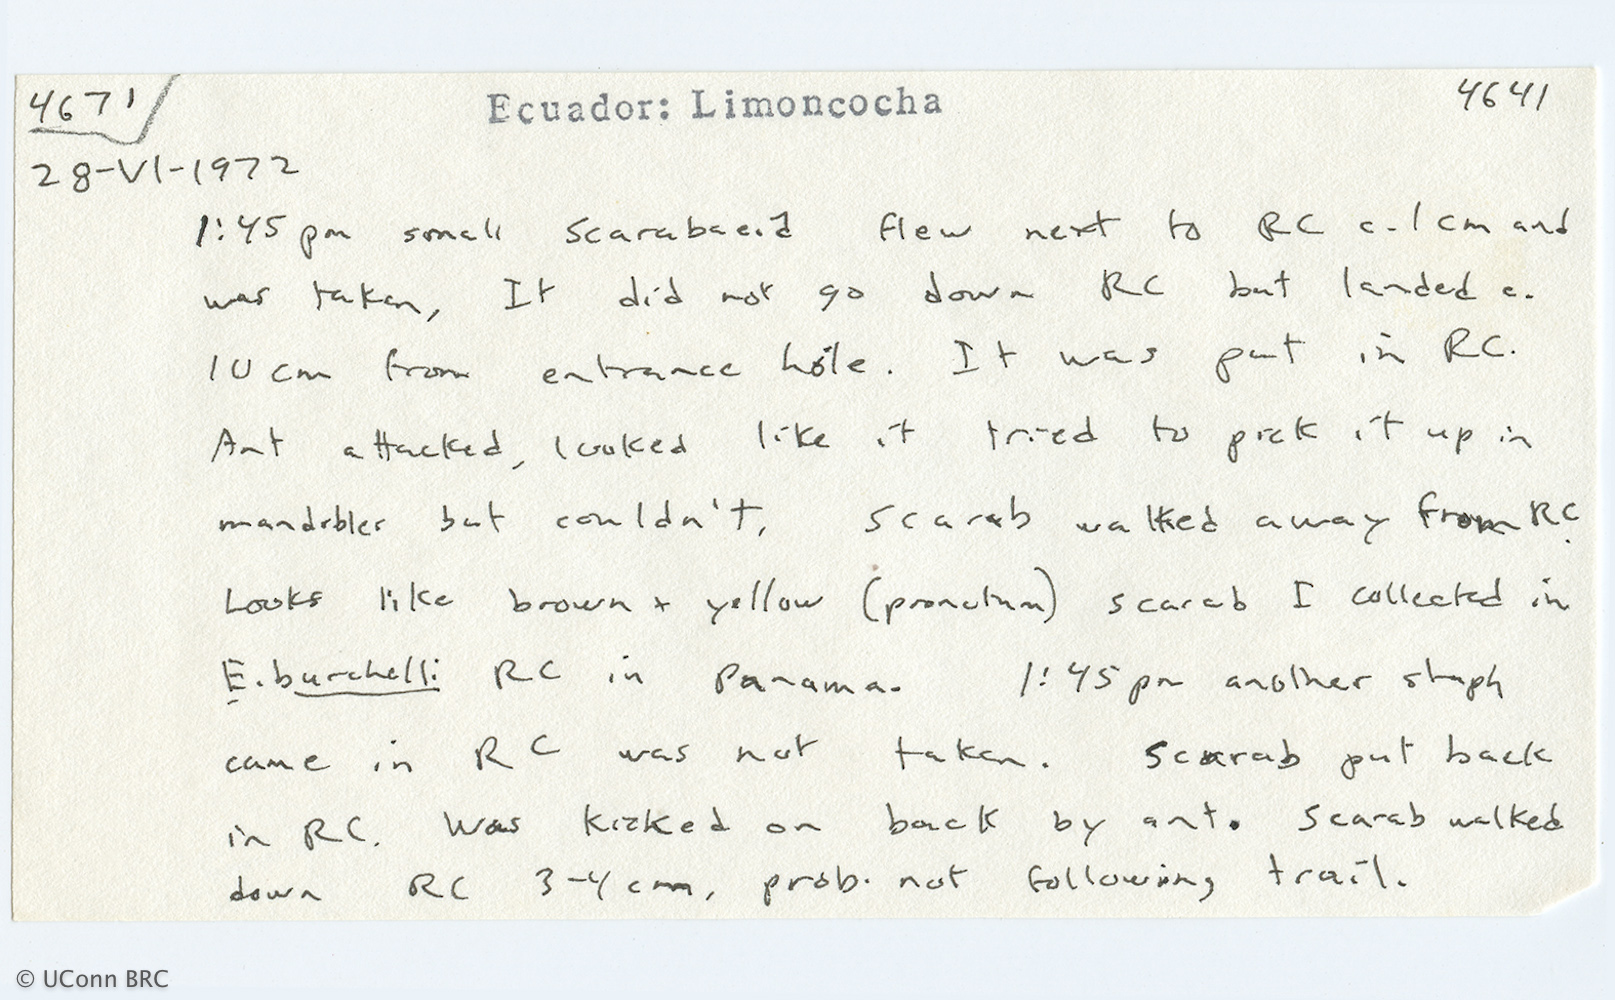 4671
Ecuador: Limoncocha
4641
28-VI-1972
1:45 pm small Scarabaeid flew next to RC c. 1 cm and
was taken, It did not go down RC but landed c.
10 cm from entrance hole. It was put in RC.
Ant attacked, looked like it tried to pick it up in
mandibles but couldn't, Scarab walked away from RC.
Looks like brown + yellow (pronotum) scarab I collected in
E. burchelli RC in Panama. 1:45 pm another staph
came in RC was not taken. Scarab put back
in RC. Was kicked on back by ant. Scarab walked
down RC 3-4 cm, prob. not following trail.
© UConn BRC